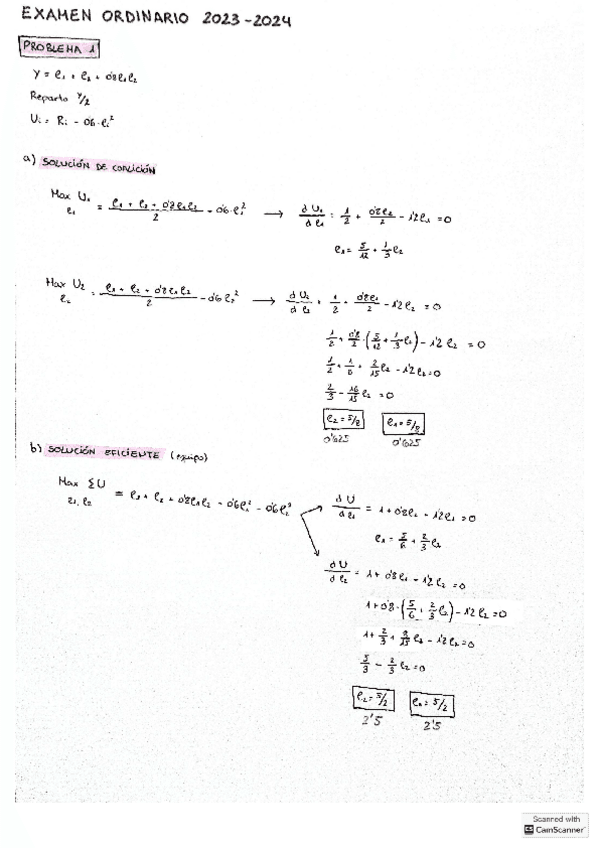 EXAMEN ORDINARIO 2023-2024
PROBLEMA 1
Y = e₁ + e₂ + 0'8e₁e₂
Reparto Y/2
Uᵢ = Rᵢ - 0'6·eᵢ²
a) SOLUCIÓN DE COALICIÓN
Max U₁ = (e₁ + e₂ + 0'8e₁e₂)/2 - 0'6·e₁² → dU₁/de₁ = 1/2 + 0'8e₂/2 - 1'2e₁ = 0
e₁
e₁ = 5/12 + 1/3 e₂
Max U₂ = (e₁ + e₂ + 0'8e₁e₂)/2 - 0'6e₂² → dU₂/de₂ = 1/2 + 0'8e₁/2 - 1'2e₂ = 0
e₂
1/2 + 0'8/2 · (5/12 + 1/3 e₂) - 1'2e₂ = 0
1/2 + 1/6 + 2/15 e₂ - 1'2e₂ = 0
2/3 - 16/15 e₂ = 0
e₂ = 5/8 e₁ = 5/8
0'625 0'625
b) SOLUCIÓN EFICIENTE (equipo)
Max ΣU = e₁ + e₂ + 0'8e₁e₂ - 0'6e₁² - 0'6e₂² dU/de₁ = 1 + 0'8e₂ - 1'2e₁ = 0
e₁, e₂
e₁ = 5/6 + 2/3 e₂
dU/de₂ = 1 + 0'8e₁ - 1'2e₂ = 0
1 + 0'8 · (5/6 + 2/3 e₂) - 1'2e₂ = 0
1 + 2/3 + 8/15 e₂ - 1'2e₂ = 0
5/3 - 2/3 e₂ = 0
e₂ = 5/2 e₁ = 5/2
2'5 2'5
Scanned with
CS CamScanner